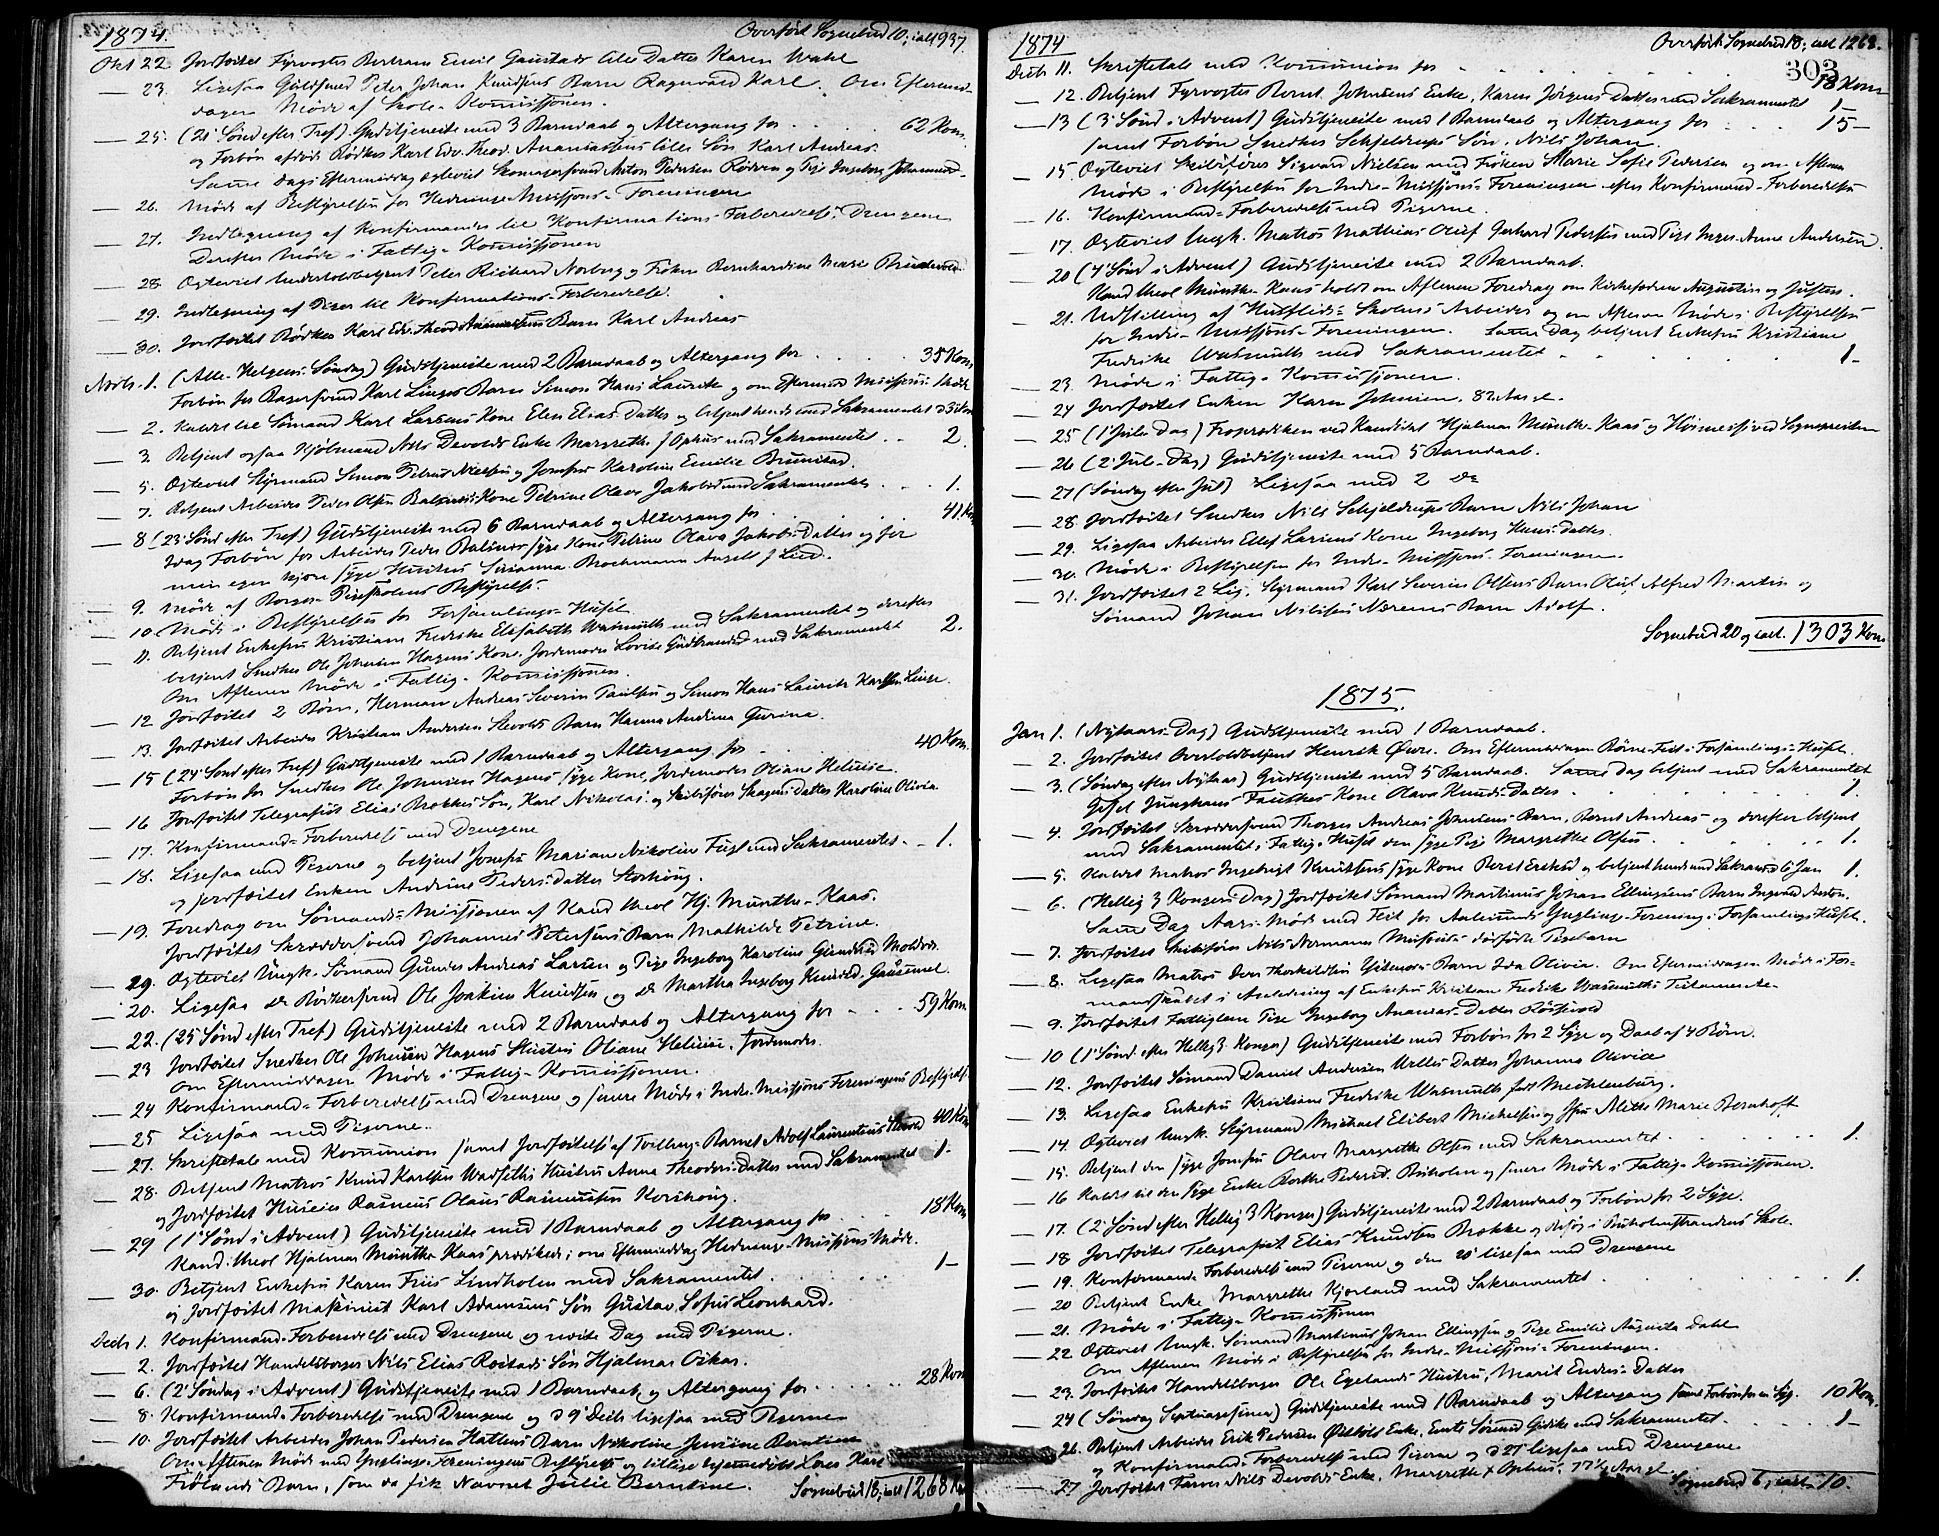 1874. Overført Sognebud 10; ialt 937.
Okt 22. Jordfæstet Fyrvogter Bertram Emil Gaustads lille Datter Karen Wahl
— 23. Ligesaa Guldsmed Peter Johan Knudsens Barn Ragnvard Karl. Om Eftermid-
dagen Møde af Skole-Komissjonen.
— 25. (21 Sønd efter Tref) Gudstjeneste med 3 Barndaab og Altergang for . . . 62 Kom.
og Forbøn afdøde Bødker Karl Edv. Theod. Ananiassens lille Søn Karl Andreas.
Samme Dags Eftermiddag ægteviet Skomagersvend Anton Pedersen Rødven og Pige Ingeborg Johannesd.
— 26. Møde af Bestyrelsen for Hedninge-Missjons-Foreningen
— 27. Indtegning af Konfirmander til Konfirmations-Forberedelse. Drengene
Derefter Møde i Fattig-Komissjonen
— 28. Ægteviet Underholdsbetjent Peter Richard Norberg og Frøken Bernhardine Marie
— 29. Indtegning af Piger til Konfirmations-Forberedelse.
— 30. Jordfæstet Bødker Karl Edv. Theod Ananiassens Barn Karl Andreas
Novb. 1. (Alle-Helgens-Søndag) Gudstjeneste med 2 Barndaab og Altergang for . . . 35 Kom.
Forbøn for Bagersvend Karl Linges Barn Simon Hans Lauritz og om Eftermid Missjons-Møde
— 2. Kaldet til Sømand Karl Larsens Kone Elen Elias Datter og betjent hende med Sakramentet
— 3. Betjent ogsaa Kjøbmand Nils Devolds Enke Margrethe f Ophus med Sakramentet . . 2.
— 5. Ægteviet Styrmand Simon Petrus Nielsen og Jomfru Karoline Emilie Brunstad.
— 7. Betjent Arbeider Peder Olsen Balsnes Kone Petrine Olava Jakobsd med Sakramentet . . . 1.
— 8 (23 Sønd efter Tref) Gudstjeneste med 6 Barndaab og Altergang for . . . 41 Kom
Idag Forbøn for Arbeider Peder Balsnes syge Kone Petrine Olava Jakobs-Datter og for
min egen kjære syge Hustru Susanna Brochmann Angell f Lund.
— 9. Møde af Borger-Pigeskolens Bestyrelse.
— 10. Møde i Bestyrelsen for Forsamlings-Huset.
— 11. Betjent Enkefru Kristiane Fredrike Elisabeth Wasmuth med Sakramentet og derefter
betjent Snedker Ole Johnsen Hagens Kone, Jordemoder Lovise Gudbrandsd med Sakramentet 2.
Om Aftenen Møde i Fattig-Komissjonen.
— 12 Jordfæstet 2 Børn, Herman Andreas Severin Paulsen og Simon Hans Lauritz Karlsen Linge.
— 13. Jordfæstet Arbeider Kristian Andersen Stevolds Barn Hanna Andrina Gurina.
— 15 (24 Sønd efter Tref) Gudstjeneste med 1 Barndaab og Altergang for . . . 40 Kom.
Forbøn for Snedker Ole Johnsens Hagens syge Kone, Jordemoder Oliane Helvise.
— 16 Jordfæstet Telegrafist Elias Brokkes Søn, Karl Nikolai og Skibsfører Skagens Datter Karoline Olivia.
— 17. Konfirmand-Forberedelse med Drengene
— 18. Ligesaa med Pigerne og betjent Jomfru Mariane Nikoline Fugl med Sakramentet . . 1.
og jordfæstet Enken Andrine Peders-Datter Storhoug.
— 19. Foredrag om Sømands-Missjonen af Kand theol Hj. Munthe-Kaas.
Jordfæstet Skræddersvend Johannes Petersens Barn Mathilde Petrine.
— 19. Ægteviet Ungk. Sømand Gunder Andreas Larsen og Pige Ingeborg Karoline Gundersd Moldvær.
— 20. Ligesaa do Bødkersvend Ole Joakim Knudsen og do Martha Ingeborg Knudsd. Gausnæs.
— 22. (25 Sønd efter Tref) Gudstjeneste med 2 Barndaab og Altergang for . . . 59 Kom.
— 23 Jordfæstet Snedker Ole Johnsen Hagens Hustru Oliane Helvise, Jordemoder.
Om Eftermiddagen Møde i Fattig-Komissjonen.
— 24 Konfirmand-Forberedelse med Drengene og senere Møde i Indre-Missjons Foreningens Bestyrelse
— 25 Ligesaa med Pigerne.
— 27. Skriftetale med Komunion samt Jordfæstelse af Tvilling-Barnet Adolf Laurentius Stevold 40 Kom
— 28. Betjent Matros Knud Karlsen Wadseths Hustru Anna Theodors-Datter med Sakramentet 1-
og Jordfæstet Huseier Rasmus Olaus Rasmussen Korshoug.
— 29 (1 Sønd i Advent) Gudstjeneste med 1 Barndaab og Altergang for . . . 18 Kom
Kand. theol Hjalmar Munthe-Kaas prædikede; om Eftermiddag Hedninge-Missjons Møde.
— 30. Betjent Enkefru Karen Friis Lindholm med Sakramentet . . . 1-
og Jordfæstet Maskinist Karl Adamsens Søn Gustav Sofus Leonhard.
Decb 1. Konfirmand-Forberedelse med Drengene og næste Dag med Pigerne.
— 2. Jordfæstet Handelsborger Nils Elias Roitads Søn Hjalmar Oskar.
— 6. (2 Søndag i Advent) Gudstjeneste med 1 Barndaab og Altergang for . . . 28 Kom
— 8. Konfirmand-Forberedelse med Drengene og d 9 Decb ligesaa med Pigerne
— 10. Jordfæstet Arbeider Johan Pedersen Hattens Barn Nikoline Jensine Berntine
Om Aftenen Møde med Ynglinge-Foreningens Bestyrelse og tillige hjemmedøbt Lars Karl
Frølands Barn, som da fik Navnet Julie Berntine. Sognebud 18; ialt 1268 Kom
1874 Overført Sognebud 18; ialt 1268.
303
Decb 11. Skriftetale med Komunion for . . . 18 Kom
— 12. Betjent Fyrvogter Bernt Johnsens Enke, Karen Jørgens Datter med Sakramentet 1-
— 13 (3 Sønd i Advent) Gudstjeneste med 1 Barndaab og Altergang for . . . 15-
samt Forbøn Snedker Schjeldrups Søn, Nils Johan.
— 15. Ægteviet Skibsfører Sigvard Nielsen med Frøken Marie Sofie Pedersen og om Aftenen
Møde i Bestyrelsen for Indre-Missjons-Foreningen efter Konfirmand-Forberedelse
— 16. Konfirmand-Forberedelse med Pigerne.
— 17. Ægteviet Ungk. Matros Mathias Oluf Gerhard Pedersen med Pige Inger Anne Andersen.
— 20 (4 Sønd i Advent) Gudstjeneste med 2 Barndaab.
Kand theol Munthe-Kaas holdt om Aftenen Foredrag om Kirkefædrene Augustin og Justus.
— 21. Udstilling af Husflids-Skolens Arbeider og om Aftenen Møde i Bestyrelsen
for Indre-Missjons-Foreningen. Samme Dag betjent Enkefru Kristiane
Fredrike Wasmuth med Sakramentet . . . 1-
— 23. Møde i Fattig-Komissjonen.
— 24 Jordfæstet Enken Karen Johnsen, 82 Aar gl.
— 25 (1 Jule-Dag) Froprædiken ved Kandidat Hjalmar Munthe-Kaas og Høimesse ved Sognepresten
— 26 (2 Jule-Dag) Gudstjeneste med 5 Barndaab.
— 27 (Søndag efter Jul) Ligesaa med 2 do
— 28. Jordfæstet Snedker Nils Schjeldrups Barn Nils Johan
— 29. Ligesaa Arbeider Ellef Larsens Kone Ingeborg Hans-Datter.
— 30. Møde i Bestyrelsen for Indre-Missjons-Foreningen.
— 31. Jordfæstet 2 Lig, Styrmand Karl Severin Olsens Barn Oluf Alfred Martin og
Sømand Johan Nilssens Nærems Barn Adolf.
Sognebud 20 og ialt 1303 Kom.
1875.
Jan 1. (Nytaars-Dag) Gudstjeneste med 1 Barndaab.
— 2. Jordfæstet Overtoldbetjent Henrik Øwre. Om Eftermiddagen Børne-Fest i Forsamlings-Huset.
— 3. (Søndag efter Nytaar) Gudstjeneste med 5 Barndaab. Samme Dag betjent med Sakramentet
Gisel Junghans Fauskes Kone Olava Knuds-Datter . . . 1
— 4. Jordfæstet Skræddersvend Thorger Andreas Johnsens Barn, Bernt Andreas og derefter betjent
med Sakramentet i Fattig-Huset den syge Pige Margrethe Olsen . . . 1.
— 5. Kaldet Matros Ingebrigt Knudsens syge Kone Beret Eriksd, og betjent hende med Sakramd 6 Jan 1.
— 6. (Hellig 3 Kongers Dag) Jordfæstet Sømand Martinus Johan Ellingsens Barn Ingvald Anton.
Samme Dag Aars-Møde med Fest for Aalesunds Ynglinge-Forening i Forsamlings-Huset.
— 7. Jordfæstet Skibsfører Nils Normann dødfødte Pigebarn
— 8. Ligesaa Matros Iver Thorkildsen Barn Ida Olivia. Om Eftermiddagen Møde i For-
mandskabet i Anledning af Enkefru Kristiane Fredrike Wasmuths Testamente.
— 9. Jordfæstet Fattiglem Pige Ingeborg Ananias-Datter Røssevold
— 10 (1 Sønd. efter Hellig 3 Konger) Gudstjeneste med Forbøn for 2 Syge og Daab af 4 Børn.
— 12. Jordfæstet Sømand Daniel Andersen Datter Johanna Olivia
— 13. Ligesaa Enkefru Kristiane Fredrike Wasmuth født Mechlenburg.
— 14. Ægteviet Ungk. Styrmand Michael Elibert Michelsen og Jfru Mette Marie Bernhoft
— 15. Betjent den syge Jomfru Olave Margrethe Olsen med Sakramentet . . . 1.
— 16 Kaldet til den syge Enke Dorthe Pedersd. Buholm og senere Møde i Fattig-Komissjonen.
— 17. (2 Sønd efter Hellig 3 Konger) Gudstjeneste med 2 Barndaab og Forbøn for 2 Syge.
— 18 Jordfæstet Telegrafist Elias Knudsen Brokke og Besøg i Buholmstrandens Skole.
— 19. Konfirmand-Forberedelse med Pigerne og den 20 ligesaa med Drengene
— 20 Betjent Enke Margrethe Kjorland med Sakramentet . . . 1.
— 21. Møde i Fattig-Komissjonen
— 22 Ægteviet Ungk. Sømand Martinus Johan Ellingsen og Pige Emilie Augusta Dahl
Om Aftenen Møde i Bestyrelsen for Indre-Missjons-Foreningen.
— 23. Jordfæstet Handelsborger Ole Egelands Hustru, Marit Endres-Datter
— 24 (Søndag Septuagesima) Gudstjeneste med 1 Barndaab og Altergang samt Forbøn for en Syg. 10 Kom.
— 26. Betjent Arbeider Erik Pedersen Enke, med Sakramentet . . . 1-
og Konfirmand-Forberedelse med Pigerne og d 27 ligesaa med Drengene
— 27 Jordfæstet Farver Nils Devolds Enke, Margrethe f Ophus, 77½ Aar gl.
Sognebud 6, ialt 10.